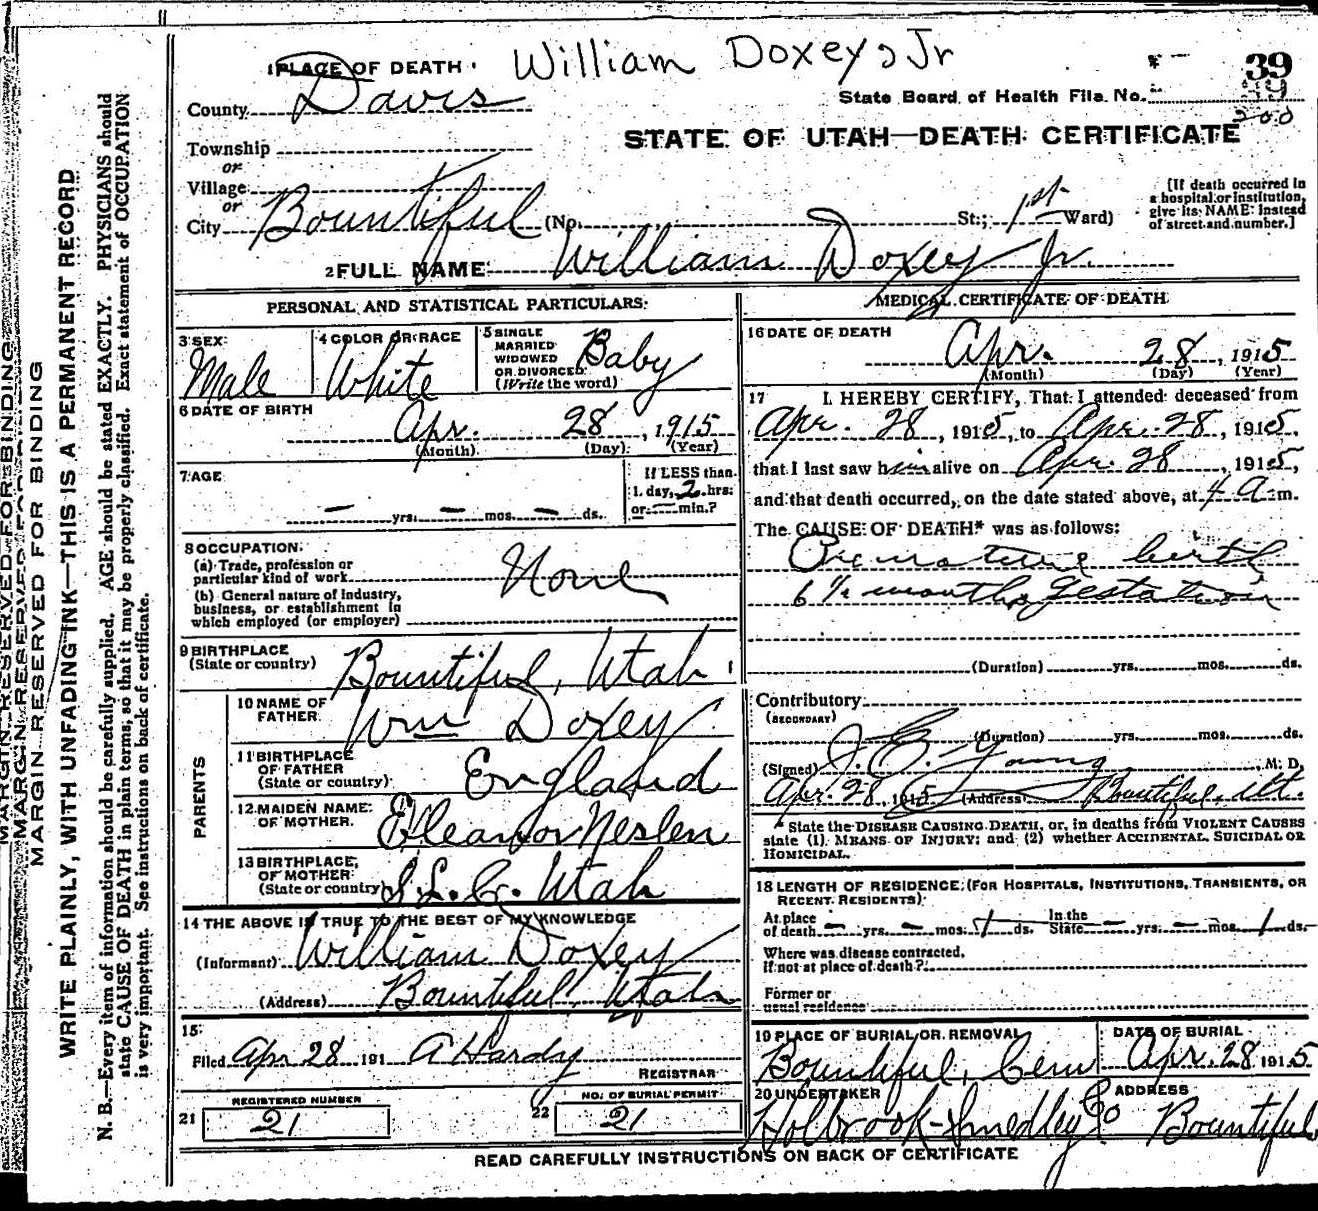 1 PLACE OF DEATH William Doxey, Jr
39
39
200
State Board of Health File No.
County Davis
STATE OF UTAH—DEATH CERTIFICATE
Township
or
Village
or
City Bountiful (No. St.; 1st Ward)
[If death occurred in a hospital or institution, give its NAME instead of street and number.]
2 FULL NAME William Doxey Jr.
PERSONAL AND STATISTICAL PARTICULARS
3 SEX Male
4 COLOR OR RACE White
5 SINGLE MARRIED WIDOWED OR DIVORCED (Write the word) Baby
6 DATE OF BIRTH
Apr. 28, 1915
(Month) (Day) (Year)
7 AGE
— yrs. — mos. — ds.
If LESS than 1 day, 2 hrs. or — min.?
8 OCCUPATION
(a) Trade, profession or particular kind of work None
(b) General nature of industry, business, or establishment in which employed (or employer)
9 BIRTHPLACE (State or country) Bountiful, Utah
PARENTS
10 NAME OF FATHER Wm Doxey
11 BIRTHPLACE OF FATHER (State or country) England
12 MAIDEN NAME OF MOTHER Eleanor Neslen
13 BIRTHPLACE OF MOTHER (State or country) S.L.C. Utah
14 THE ABOVE IS TRUE TO THE BEST OF MY KNOWLEDGE
(Informant) William Doxey
(Address) Bountiful, Utah
15
Filed Apr 28 191 A Hardy
REGISTRAR
21 REGISTERED NUMBER 21
22 NO. OF BURIAL PERMIT 21
MEDICAL CERTIFICATE OF DEATH
16 DATE OF DEATH
Apr. 28, 1915
(Month) (Day) (Year)
17 I HEREBY CERTIFY, That I attended deceased from
Apr. 28, 1915, to Apr. 28, 1915,
that I last saw him alive on Apr. 28, 1915,
and that death occurred, on the date stated above, at 4 a m.
The CAUSE OF DEATH* was as follows:
Premature birth
6 1/2 months gestation
(Duration) yrs. mos. ds.
Contributory
(SECONDARY)
(Duration) yrs. mos. ds.
(Signed) Young M. D.
Apr. 28, 1915 (Address) Bountiful, Ut.
* State the DISEASE CAUSING DEATH, or, in deaths from VIOLENT CAUSES
state (1) MEANS OF INJURY; and (2) whether ACCIDENTAL, SUICIDAL OR
HOMICIDAL.
18 LENGTH OF RESIDENCE (FOR HOSPITALS, INSTITUTIONS, TRANSIENTS, OR
RECENT RESIDENTS)
At place of death — yrs. — mos. 1 ds. In the State — yrs. — mos. 1 ds.
Where was disease contracted, If not at place of death?
Former or usual residence
19 PLACE OF BURIAL OR REMOVAL Bountiful, Cem
DATE OF BURIAL Apr. 28 1915
20 UNDERTAKER Holbrook-Smedley Co
ADDRESS Bountiful
READ CAREFULLY INSTRUCTIONS ON BACK OF CERTIFICATE
MARGIN RESERVED FOR BINDING
MARGIN RESERVED FOR BINDING
MARGIN RESERVED FOR BINDING
WRITE PLAINLY, WITH UNFADING INK—THIS IS A PERMANENT RECORD
N. B.—Every item of information should be carefully supplied. AGE should be stated EXACTLY. PHYSICIANS should
state CAUSE OF DEATH in plain terms, so that it may be properly classified. Exact statement of OCCUPATION
is very important. See instructions on back of certificate.